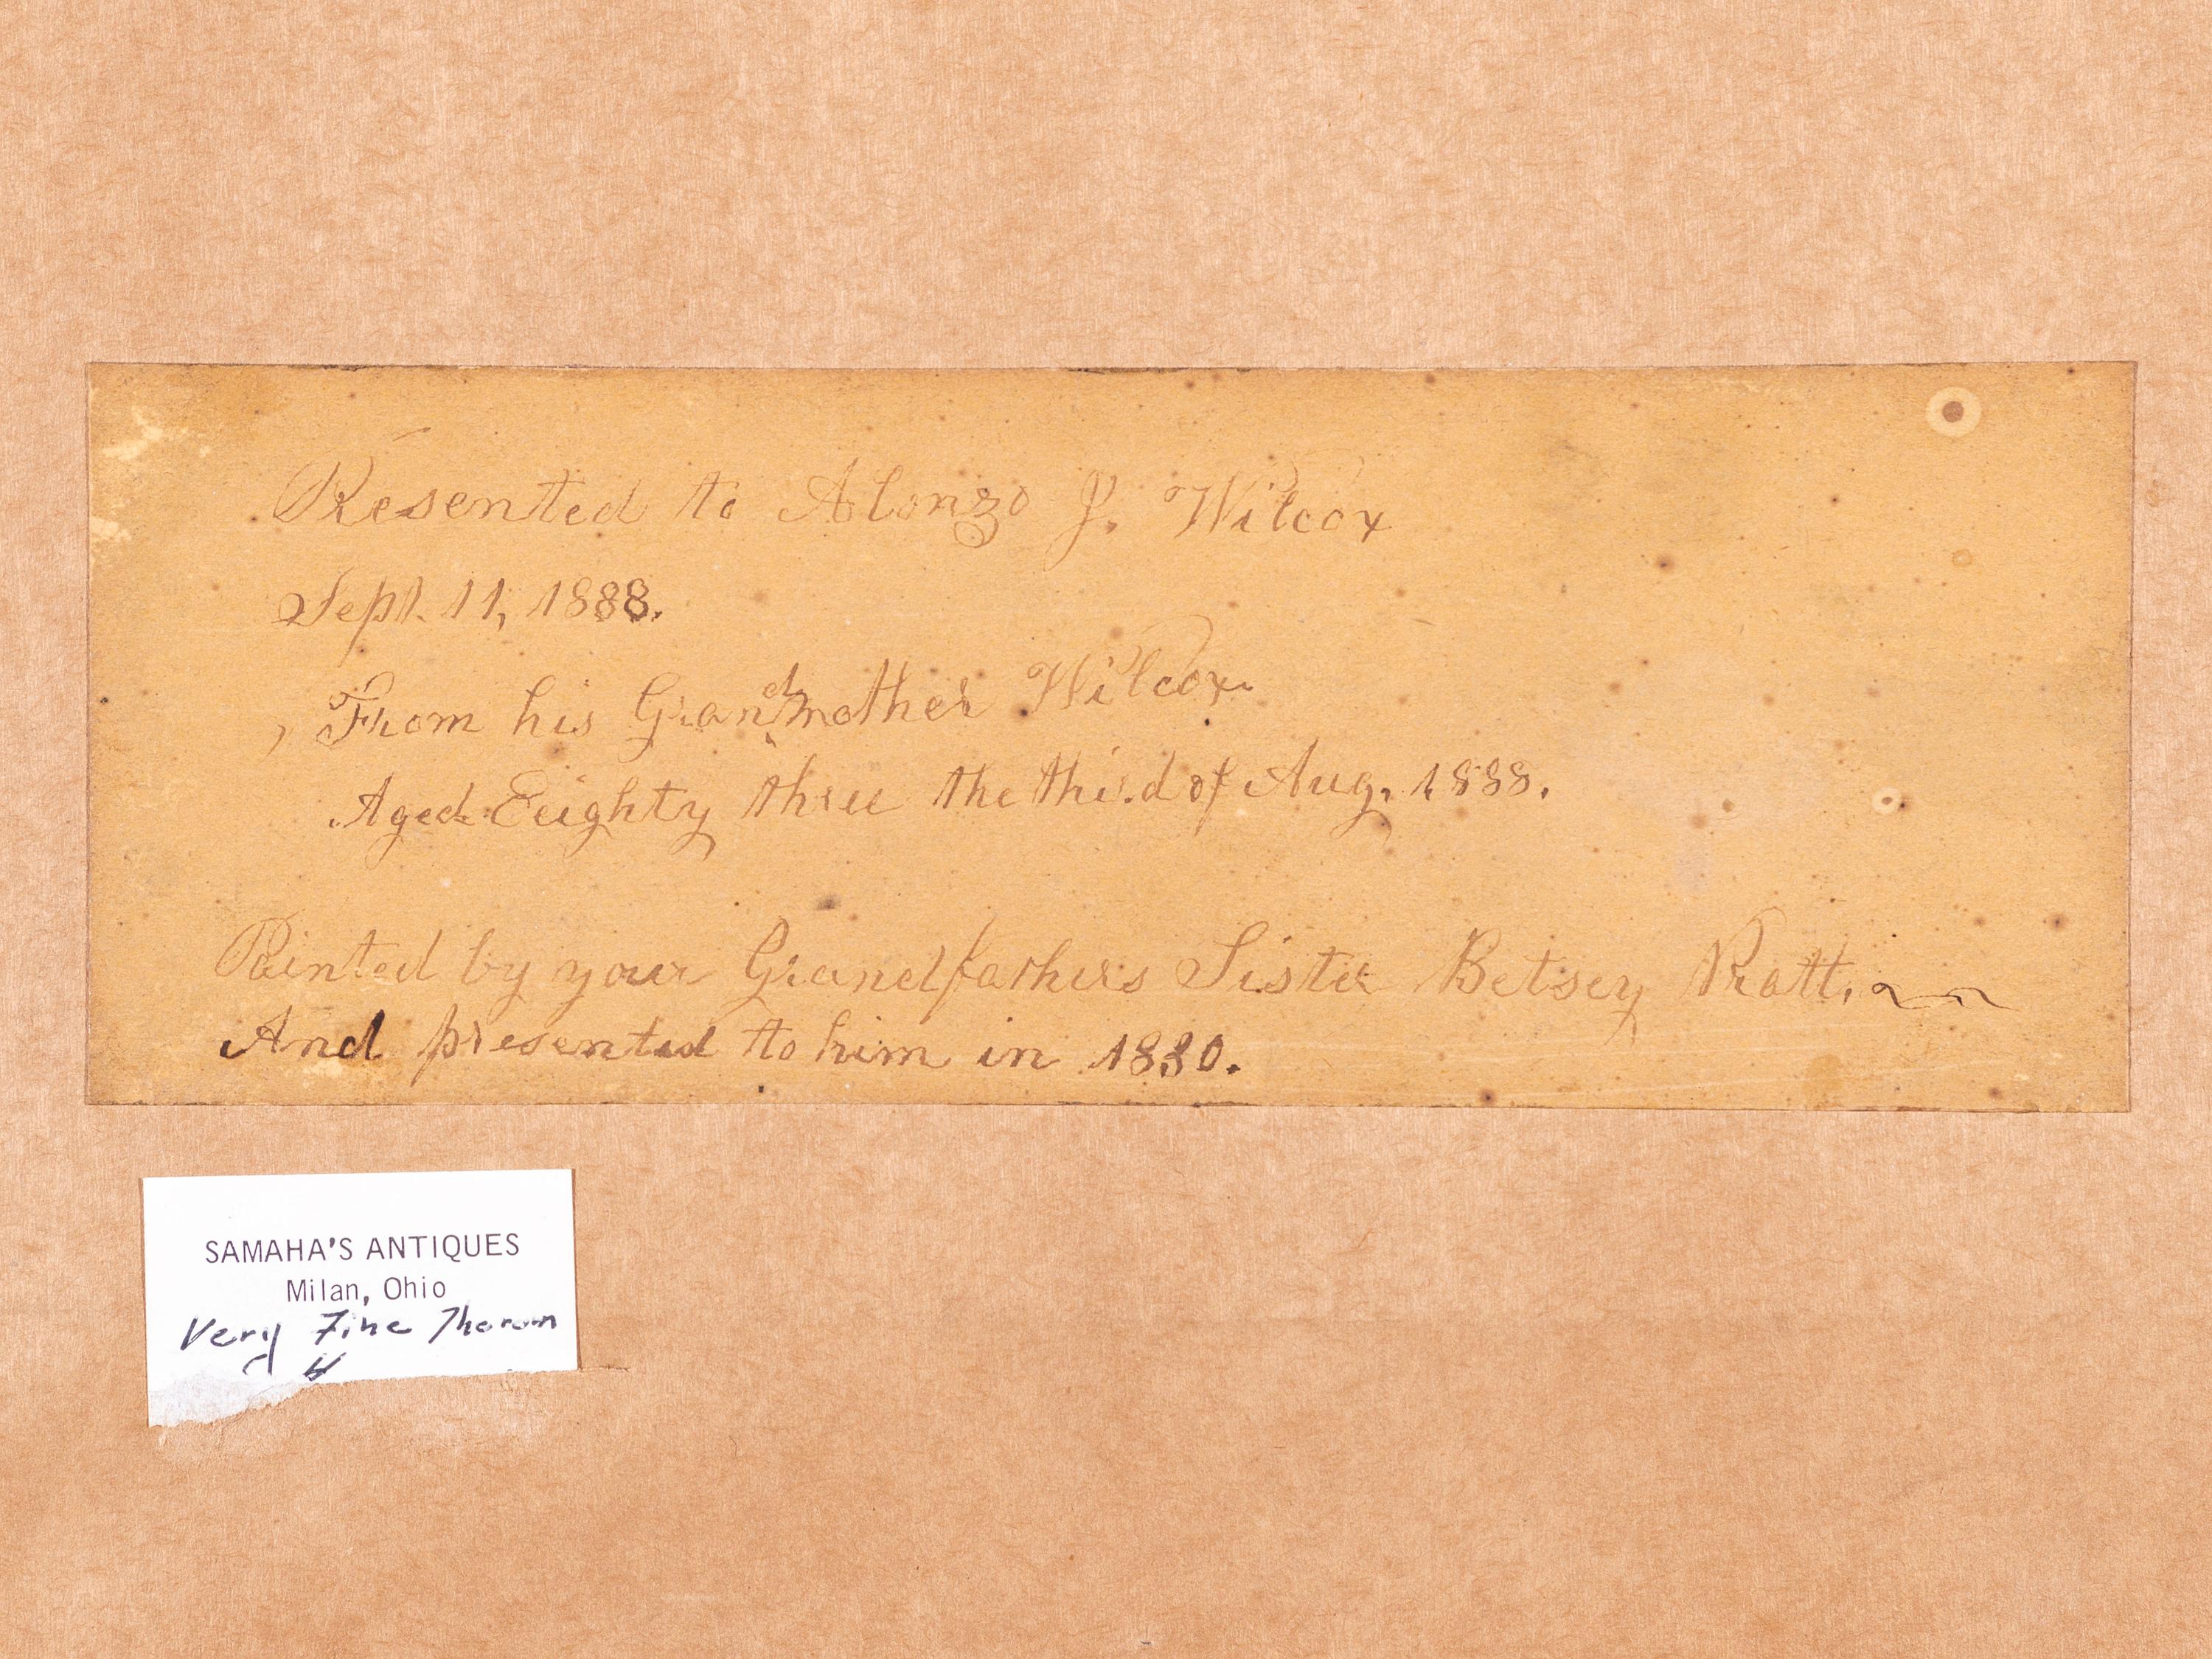 Presented to Alonzo J. Wilcox
Sept. 11, 1888.
From his Grandmother Wilcox.
Aged Eeighty three the third of Aug. 1888.
Painted by your Grandfathers Sister Betsey Pratt.
And presented to him in 1830.
SAMAHA'S ANTIQUES
Milan, Ohio
Very Fine Theorem